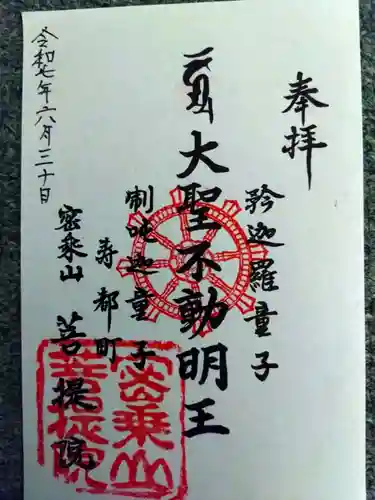 奉拝
矜迦羅童子
大聖不動明王
制吒迦童子
寿都町
密乗山
菩提院
令和七年六月三十日
密乗山
菩提院